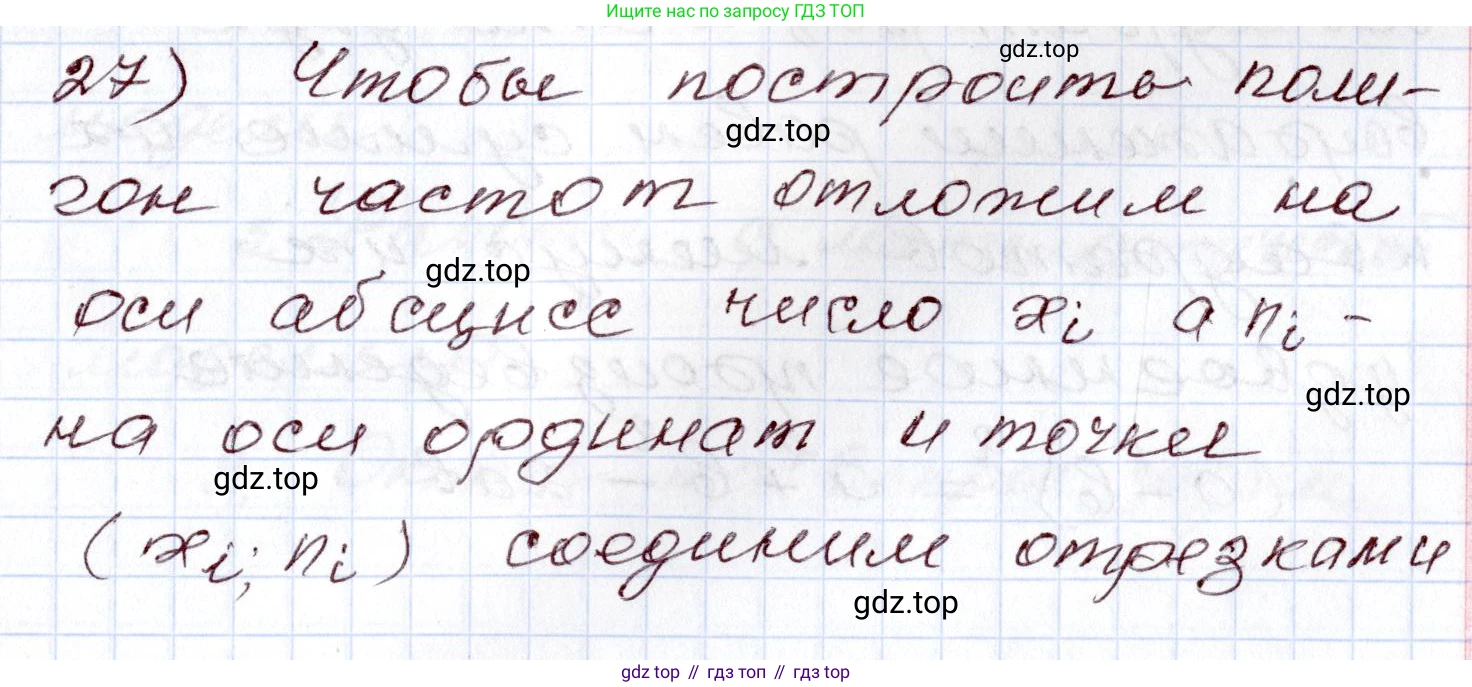 Ищите нас по запросу ГДЗ ТОП
gdz.top
27) Чтобы построить поли-
gdz.top
гон частот отложим на
gdz.top
оси абсцисс число xᵢ а nᵢ -
gdz.top
на оси ординат и точки
gdz.top
(xᵢ; nᵢ) соединим отрезками
gdz.top
gdz top // гдз топ // gdz top